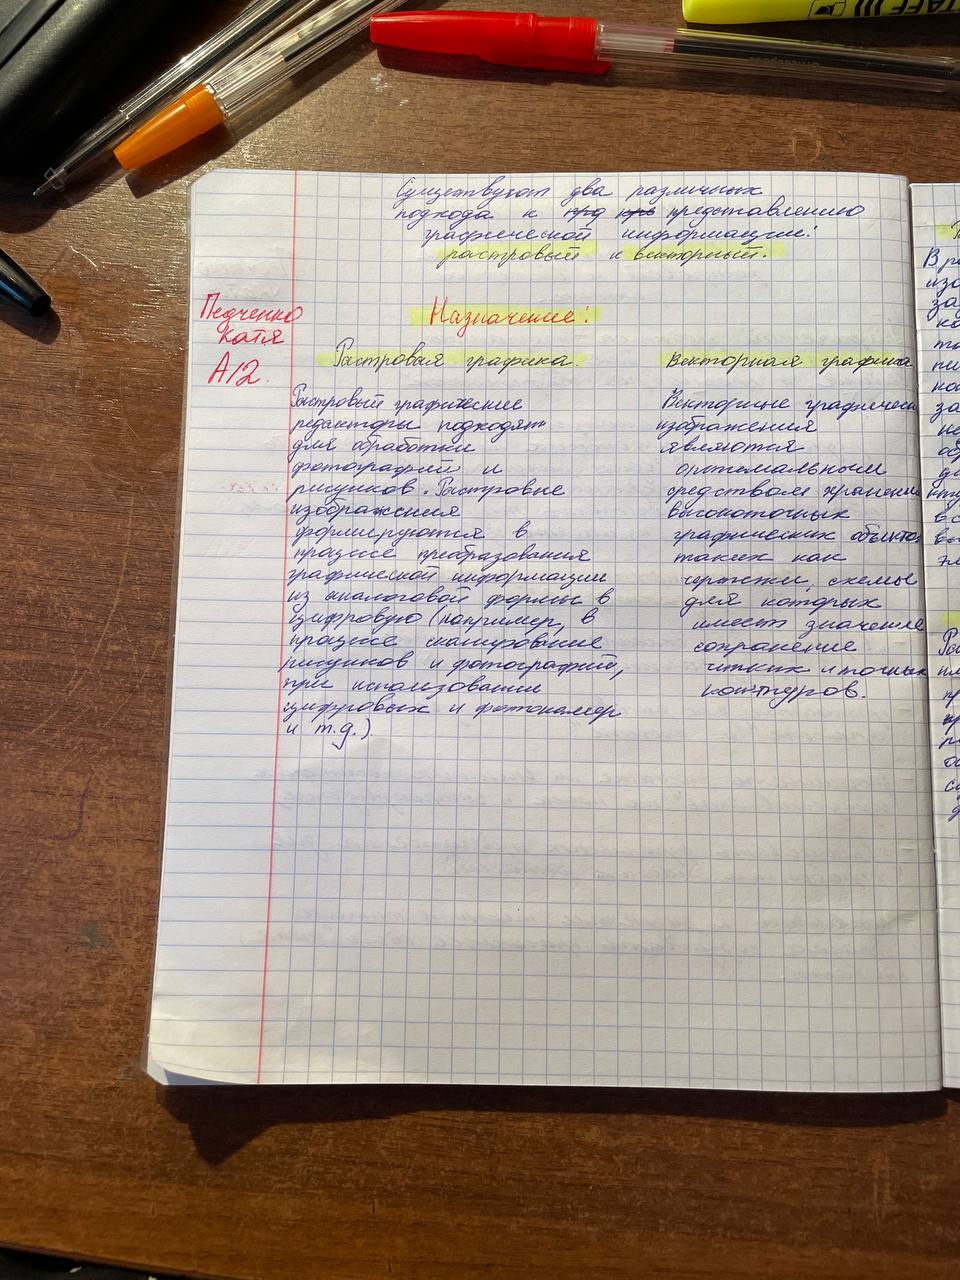 STAFF
Существуют два различных
подхода к прд прь представлению
графической информации:
растровый и векторный.
Педченко
Катя
А12.
Назначение:
Растровая графика.
Растровый графические
редакторы подходят
для обработки
фотографий и
рисунков. Растровые
изображения
формируются в
процессе преобразования
графической информации
из аналоговой формы в
цифровую (например, в
процессе сканирование
рисунков и фотографий,
при использовании
цифровых и фотокамер
и т.д.)
Векторная графика
Векторные графическ
изображения
являются
оптимальным
средством хранения
высокоточных
графических объектов
таких как
чертежи, схемы
для которых
имеет значение
сохранение
четких и точных
контуров.